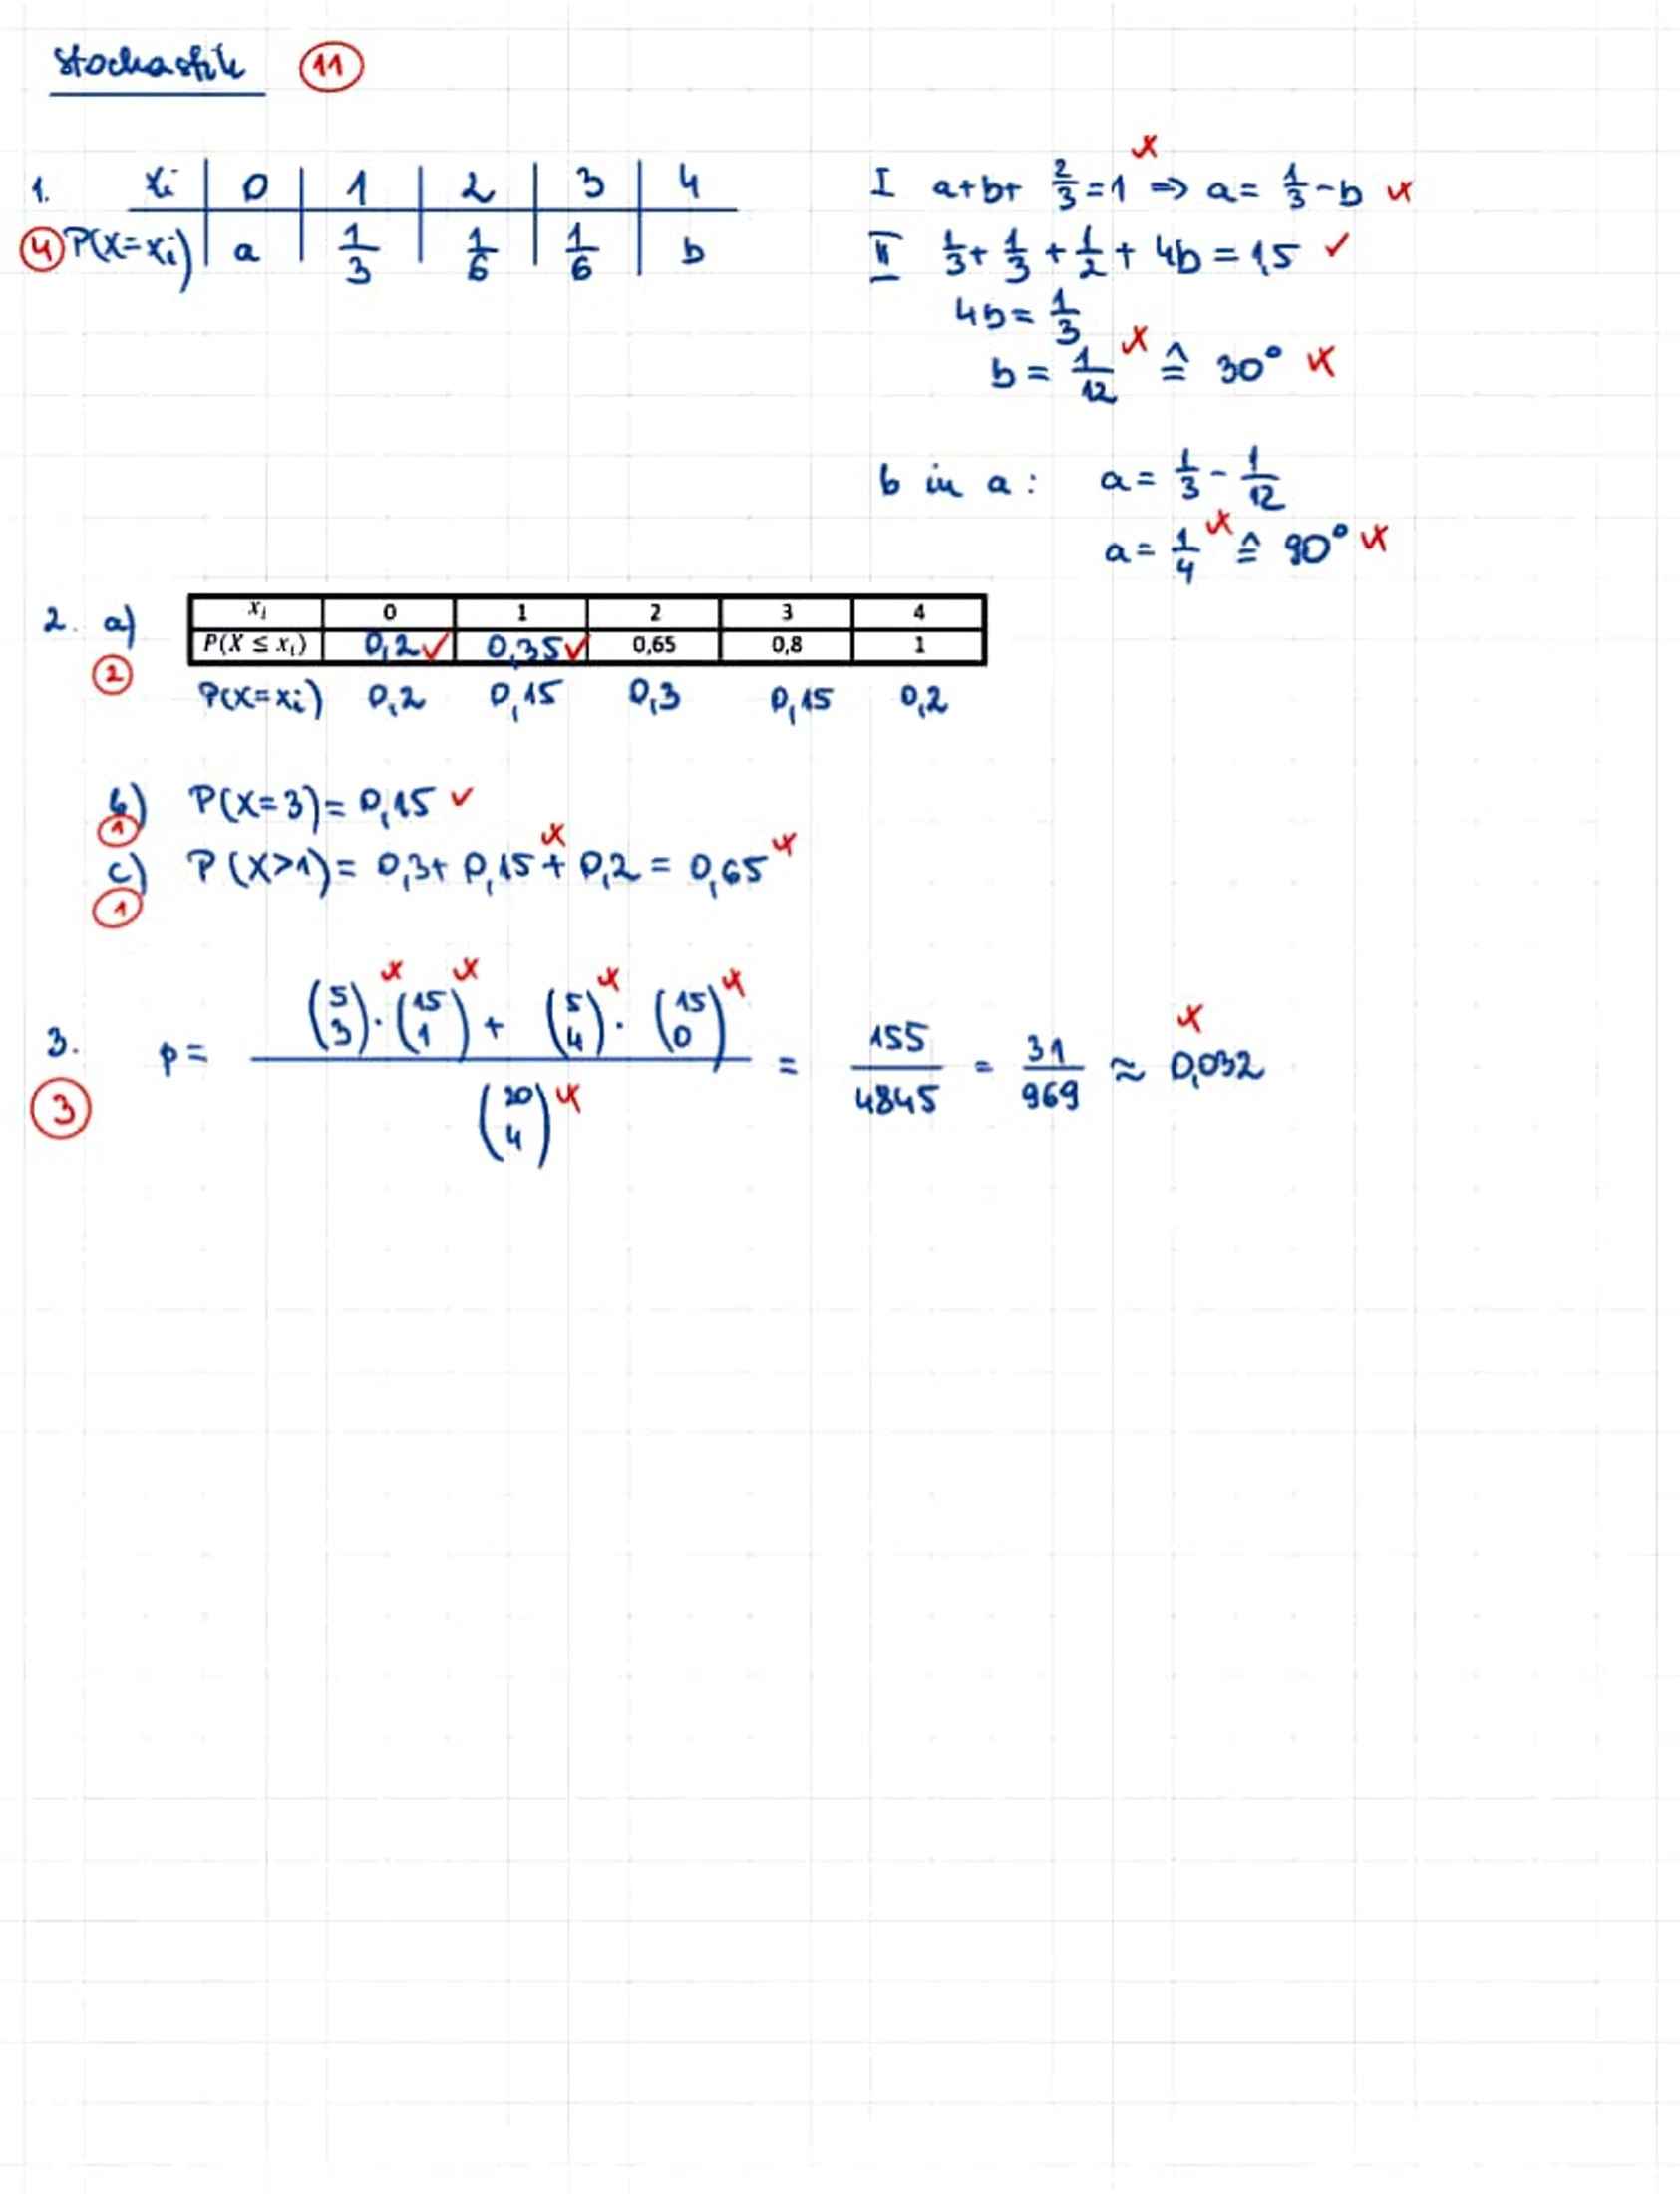 Stochastik 11
1. xi 0 1 2 3 4
4 P(X=xi) a 1/3 1/6 1/6 b
I a+b+ 2/3 = 1 ⇒ a = 1/3 - b
II 1/3 + 1/3 + 1/2 + 4b = 1,5 ✓
4b = 1/3
b = 1/12 ≙ 30°
b in a: a = 1/3 - 1/12
a = 1/4 ≙ 90°
2. a) xi 0 1 2 3 4
2 P(X ≤ xi) 0,2 ✓ 0,35 ✓ 0,65 0,8 1
P(X=xi) 0,2 0,15 0,3 0,15 0,2
b) P(X=3) = 0,15 ✓
1
c) P(X>1) = 0,3 + 0,15 + 0,2 = 0,65
1
3. p = ((5 3) · (15 1) + (5 4) · (15 0)) / (20 4) = 155/4845 = 31/969 ≈ 0,032
3